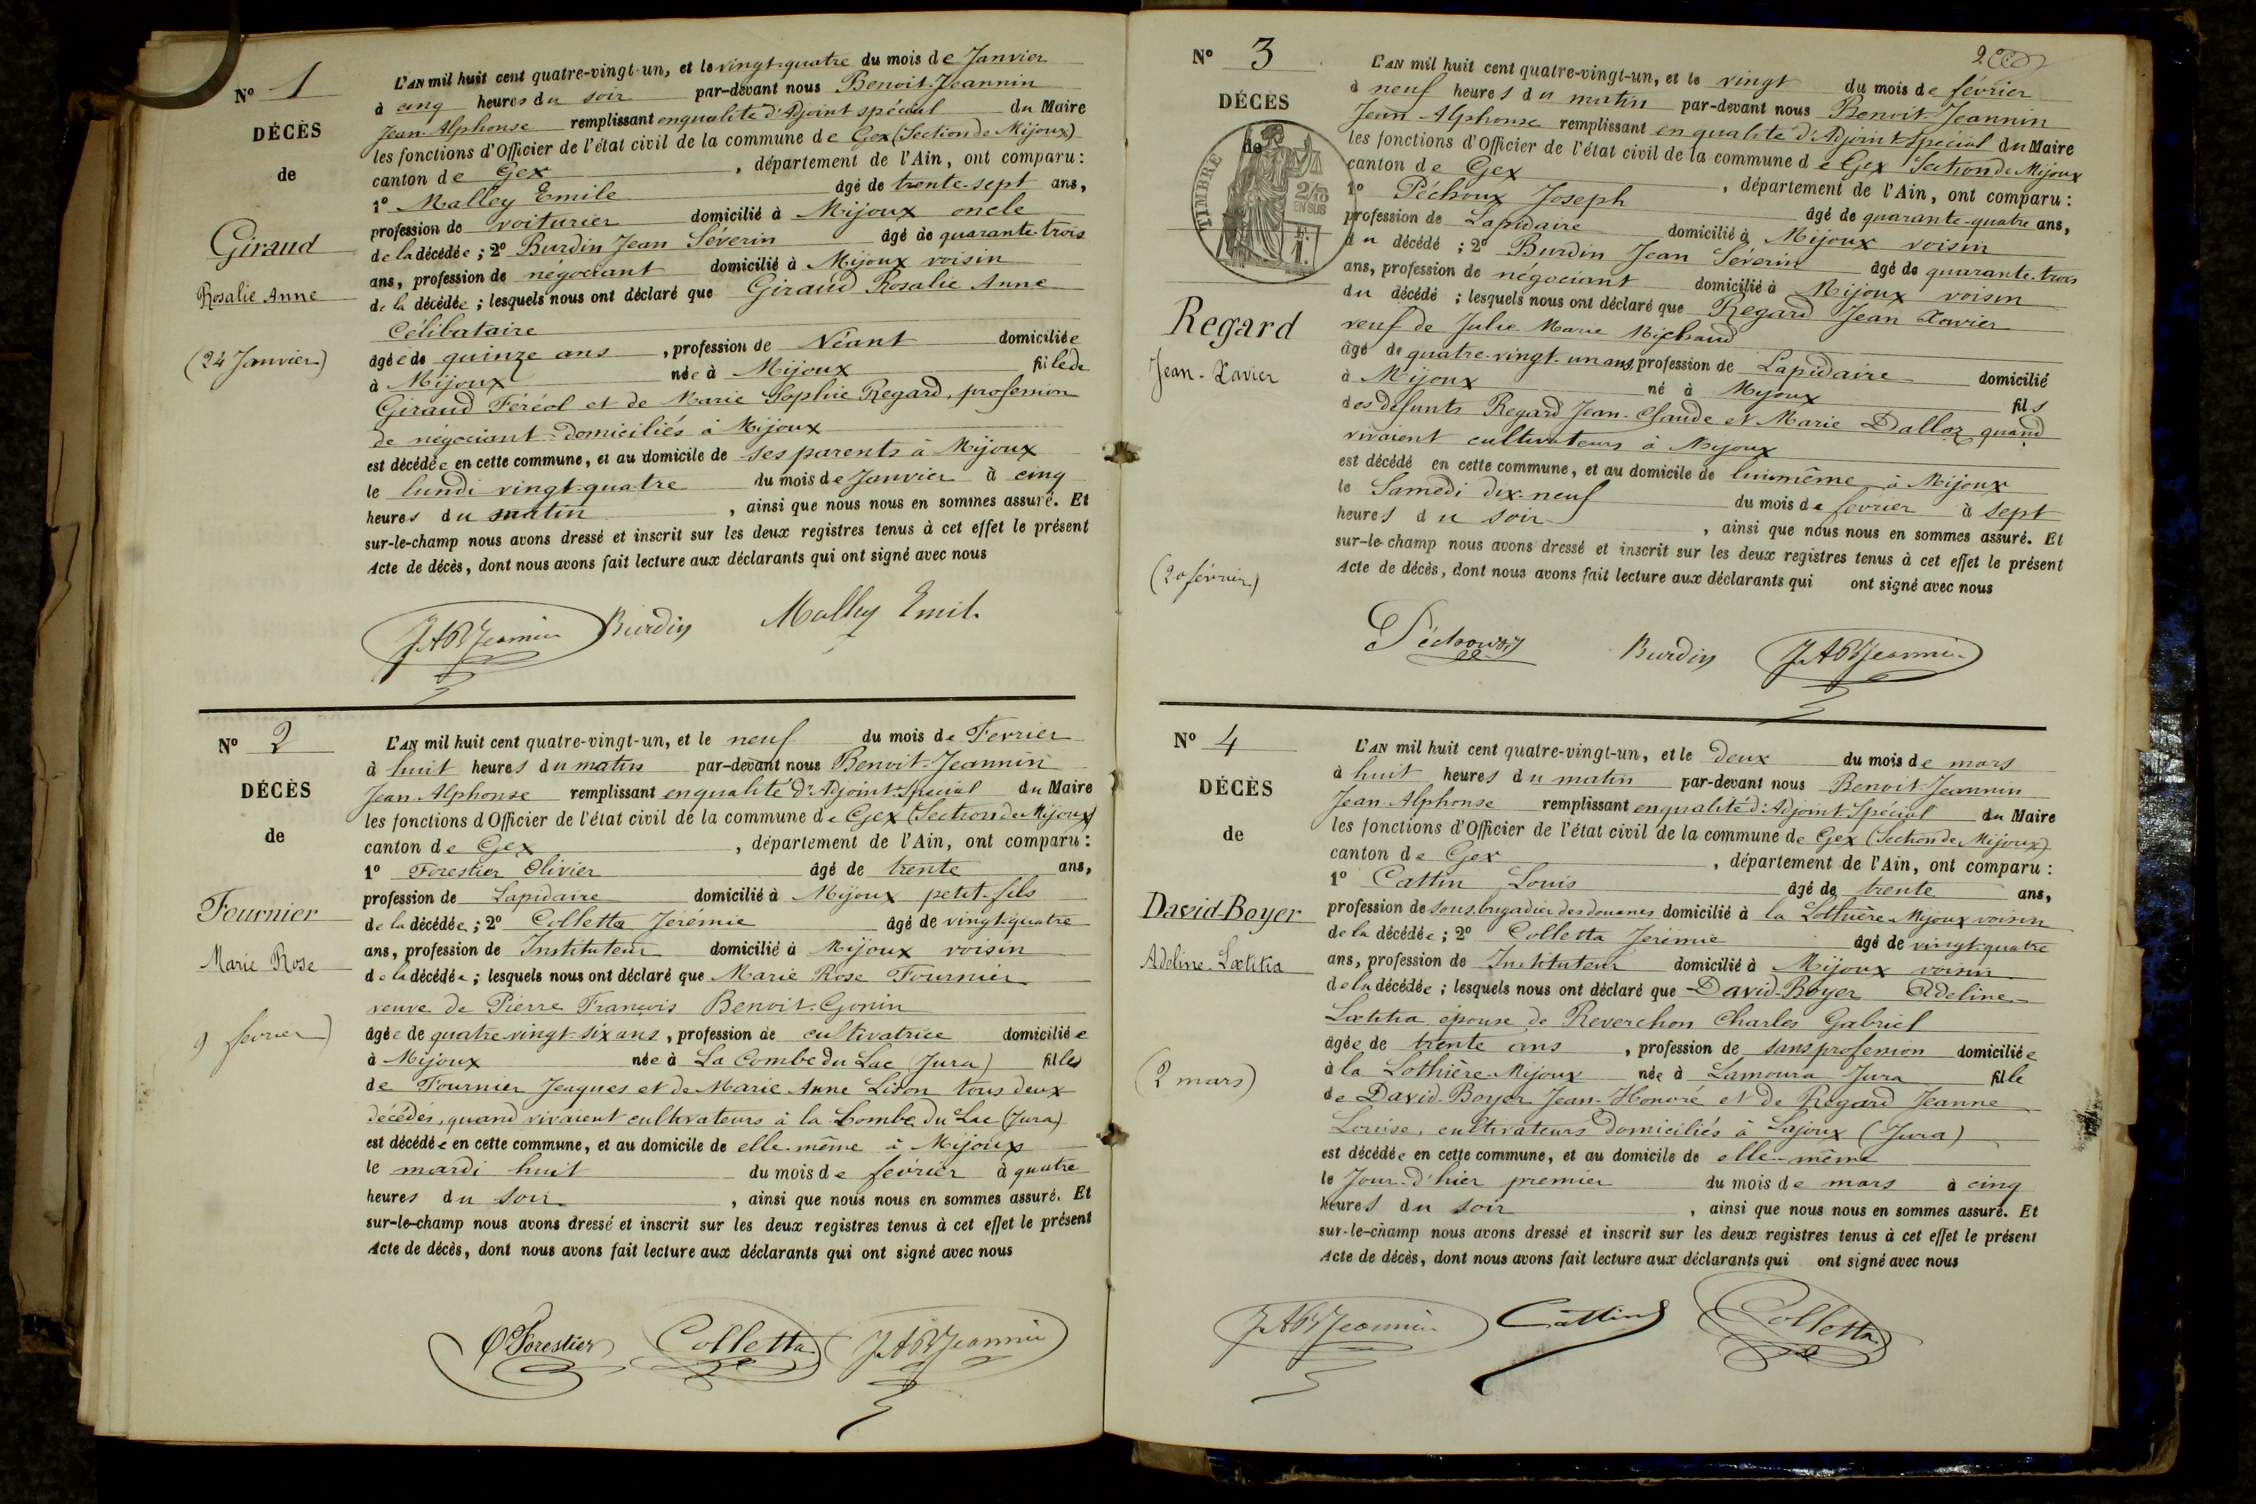 N° 1
DÉCÈS
de
Giraud
Rosalie Anne
(24 Janvier)
L'AN mil huit cent quatre-vingt-un, et le vingt-quatre du mois de Janvier
à cinq heures du soir par-devant nous Benoit-Jeannin
Jean-Alphonse remplissant en qualité d'Adjoint spécial du Maire
les fonctions d'Officier de l'état civil de la commune de Gex (Section de Mijoux)
canton de Gex, département de l'Ain, ont comparu :
1° Malley Emile âgé de trente-sept ans,
profession de voiturier domicilié à Mijoux oncle
de la décédée ; 2° Burdin Jean Séverin âgé de quarante-trois
ans, profession de négociant domicilié à Mijoux voisin
de la décédée ; lesquels nous ont déclaré que Giraud Rosalie Anne
Célibataire
âgée de quinze ans, profession de Néant domiciliée
à Mijoux née à Mijoux fille de
Giraud Féréol et de Marie Sophie Regard, profession
de négociant domiciliés à Mijoux
est décédée en cette commune, et au domicile de ses parents à Mijoux
le lundi vingt-quatre du mois de Janvier à cinq
heures du matin, ainsi que nous nous en sommes assuré. Et
sur-le-champ nous avons dressé et inscrit sur les deux registres tenus à cet effet le présent
Acte de décès, dont nous avons fait lecture aux déclarants qui ont signé avec nous
JABJeannin Burdin Malley Emil.
N° 2
DÉCÈS
de
Fournier
Marie Rose
9 février)
L'AN mil huit cent quatre-vingt-un, et le neuf du mois de Fevrier
à huit heures du matin par-devant nous Benoit-Jeannin
Jean-Alphonse remplissant en qualité d'Adjoint-Spécial du Maire
les fonctions d'Officier de l'état civil de la commune de Gex (Section de Mijoux)
canton de Gex, département de l'Ain, ont comparu :
1° Forestier Olivier âgé de trente ans,
profession de Lapidaire domicilié à Mijoux petit-fils
de la décédée ; 2° Colletta Jérémie âgé de vingt-quatre
ans, profession de Instituteur domicilié à Mijoux voisin
de la décédée ; lesquels nous ont déclaré que Marie Rose Fournier
veuve de Pierre François Benoit-Gonin
âgée de quatre vingt-six ans, profession de cultivatrice domiciliée
à Mijoux née à La Combe du Lac (Jura) fille
de Fournier Jcaques et de Marie Anne Lison tous deux
décédés, quand vivaient cultivateurs à la Combe du Lac (Jura)
est décédée en cette commune, et au domicile de elle-même à Mijoux
le mardi huit du mois de février à quatre
heures du soir, ainsi que nous nous en sommes assuré. Et
sur-le-champ nous avons dressé et inscrit sur les deux registres tenus à cet effet le présent
Acte de décès, dont nous avons fait lecture aux déclarants qui ont signé avec nous
O Forestier Colletta JABJeannin
2
N° 3
DÉCÈS
de
TIMBRE
2/10
EN SUS
Regard
Jean-Xavier
(20 février)
L'AN mil huit cent quatre-vingt-un, et le vingt du mois de février
à neuf heures du matin par-devant nous Benoit-Jeannin
Jean Alphonse remplissant en qualité d'Adjoint-Spécial du Maire
les fonctions d'Officier de l'état civil de la commune de Gex Section de Mijoux
canton de Gex, département de l'Ain, ont comparu :
1° Péchoux Joseph âgé de quarante-quatre ans,
profession de Lapidaire domicilié à Mijoux voisin
du décédé ; 2° Burdin Jean Séverin âgé de quarante-trois
ans, profession de négociant domicilié à Mijoux voisin
du décédé ; lesquels nous ont déclaré que Regard Jean Xavier
veuf de Julie Marie Michaud
âgé de quatre-vingt-un ans, profession de Lapidaire domicilié
à Mijoux né à Mijoux fils
des défunts Regard Jean-Claude et Marie Dalloz quand
vivaient cultivateurs à Mijoux
est décédé en cette commune, et au domicile de lui-même à Mijoux
le Samedi dix-neuf du mois de février à sept
heures du soir, ainsi que nous nous en sommes assuré. Et
sur-le-champ nous avons dressé et inscrit sur les deux registres tenus à cet effet le présent
Acte de décès, dont nous avons fait lecture aux déclarants qui ont signé avec nous
Péchoux Burdin JABJeannin
N° 4
DÉCÈS
de
David-Boyer
Adeline-Lætitia
(2 mars)
L'AN mil huit cent quatre-vingt-un, et le deux du mois de mars
à huit heures du matin par-devant nous Benoit-Jeannin
Jean-Alphonse remplissant en qualité d'Adjoint-Spécial du Maire
les fonctions d'Officier de l'état civil de la commune de Gex (Section de Mijoux)
canton de Gex, département de l'Ain, ont comparu :
1° Cattin Louis âgé de trente ans,
profession de sous-brigadier des douanes domicilié à la Lothière Mijoux voisin
de la décédée ; 2° Colletta Jérémie âgé de vingt-quatre
ans, profession de Instituteur domicilié à Mijoux voisin
de la décédée ; lesquels nous ont déclaré que David-Boyer Adeline
Lætitia épouse de Reverchon Charles Gabriel
âgée de trente ans, profession de sans profession domiciliée
à la Lothière-Mijoux née à Lamoura Jura fille
de David-Boyer Jean-Honoré et de Regard Jeanne
Louise, cultivateurs domiciliés à Lajoux (Jura)
est décédée en cette commune, et au domicile de elle-même
le Jour-d'hier premier du mois de mars à cinq
heures du soir, ainsi que nous nous en sommes assuré. Et
sur-le-champ nous avons dressé et inscrit sur les deux registres tenus à cet effet le présent
Acte de décès, dont nous avons fait lecture aux déclarants qui ont signé avec nous
JABJeannin Cattin Colletta